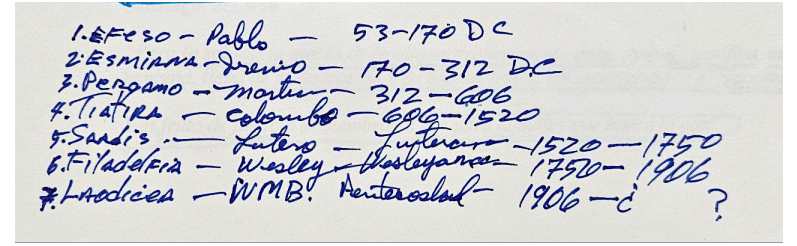 1. EFeso - Pablo - 53-170 DC
2. ESMIRNA - Irenio - 170-312 D.C
3. PERGAMO - Martin - 312-606
4. TIATIRA - Colombo - 606-1520
5. Sardis. - Lutero - Luterana - 1520-1750
6. FiladelFia - Wesley - Wesleyana - 1750-1906
7. LAodicea - WMB. Pentecostal - 1906-¿ ?